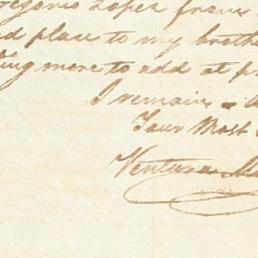 regorio Lopez from
d place to my brothe
ing more to add at p
I remain
Your Most
Ventura